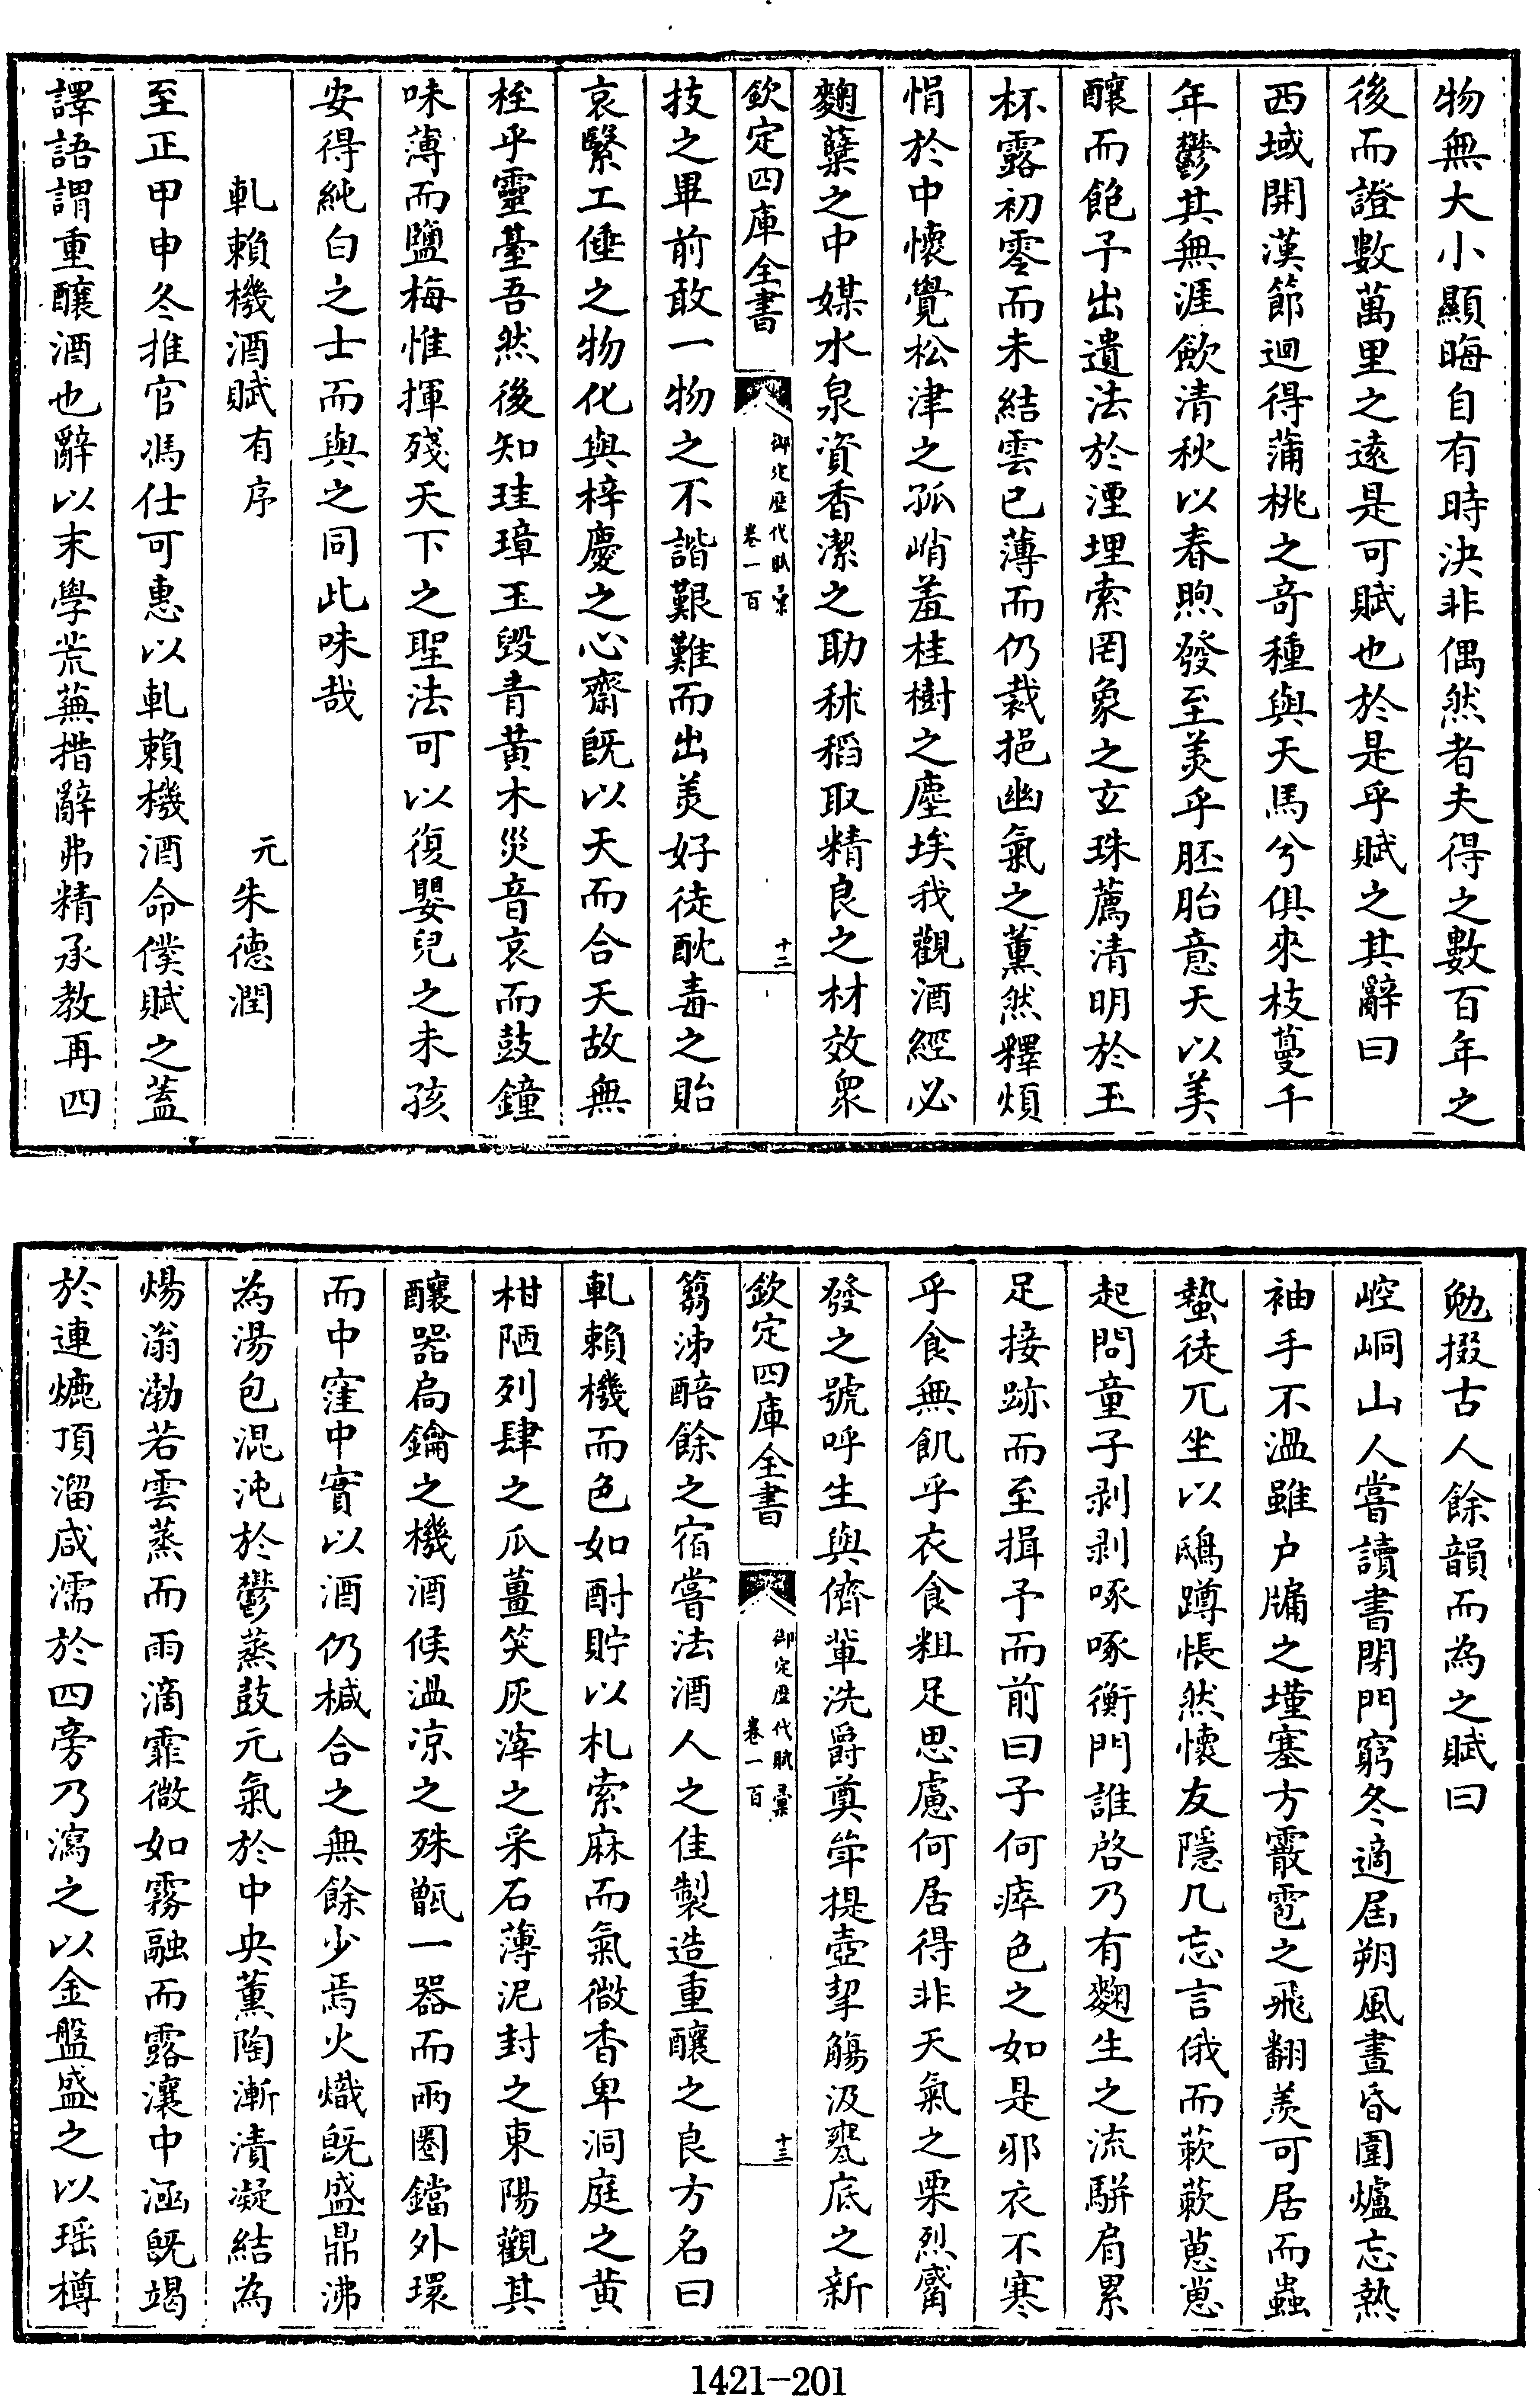 物無大小顯晦自有時決非偶然者夫得之數百年之
後而證數萬里之遠是可賦也於是乎賦之其辭曰
西域開漢節迴得蒲桃之奇種與天馬兮俱來枝蔓千
年鬱其無涯飲清秋以春煦發至美乎胚胎意天以美
釀而飽予出遺法於湮埋索罔象之玄珠薦清明於玉
杯露初零而未結雲已薄而仍裁挹幽氣之薰然釋煩
悁於中懷覺松津之孤峭羞桂樹之塵埃我觀酒經必
麴糱之中媒水泉資香潔之助秫稻取精良之材效衆
欽定四庫全書
御定歷代賦彙
卷一百
十二
技之畢前敢一物之不諧艱難而出美好徒酖毒之貽
哀繄工倕之物化與梓慶之心齋旣以天而合天故無
桎乎靈臺吾然後知珪璋玉毀青黃木災音哀而鼓鐘
味薄而鹽梅惟揮殘天下之聖法可以復嬰兒之未孩
安得純白之士而與之同此味哉
軋賴機酒賦有序
元朱德潤
至正甲申冬推官馮仕可惠以軋賴機酒命僕賦之蓋
譯語謂重釀酒也辭以末學荒蕪措辭弗精承教再四
勉掇古人餘韻而為之賦曰
崆峒山人嘗讀書閉門窮冬適屆朔風晝昏圍爐忘熱
袖手不溫雖户牖之墐塞方霰雹之飛翻羨可居而蟲
蟄徒兀坐以鴟蹲悵然懷友隱几忘言俄而蔌蔌蒽蒽
起問童子剥剥啄啄衡門誰啓乃有麴生之流駢肩累
足接跡而至揖予而前曰子何瘁色之如是邪衣不寒
乎食無飢乎衣食粗足思慮何居得非天氣之栗烈觱
發之號呼生與儕輩洗爵奠斝提壺挈觴汲甕底之新
篘沸醅餘之宿嘗法酒人之佳製造重釀之良方名曰
軋賴機而色如酎貯以札索麻而氣微香卑洞庭之黃
柑陋列肆之瓜薑笑灰滓之采石薄泥封之東陽觀其
釀器扃鑰之機酒候温涼之殊甑一器而兩圈鐺外環
而中窪中實以酒仍械合之無餘少焉火熾旣盛鼎沸
為湯包混沌於鬱蒸鼓元氣於中央薰陶漸漬凝結為
煬滃渤若雲蒸而雨滴霏微如霧融而露瀼中涵旣竭
於連熝頂溜咸濡於四旁乃瀉之以金盤盛之以瑶樽
欽定四庫全書
御定歷代賦彙
卷一百
十三
1421-201